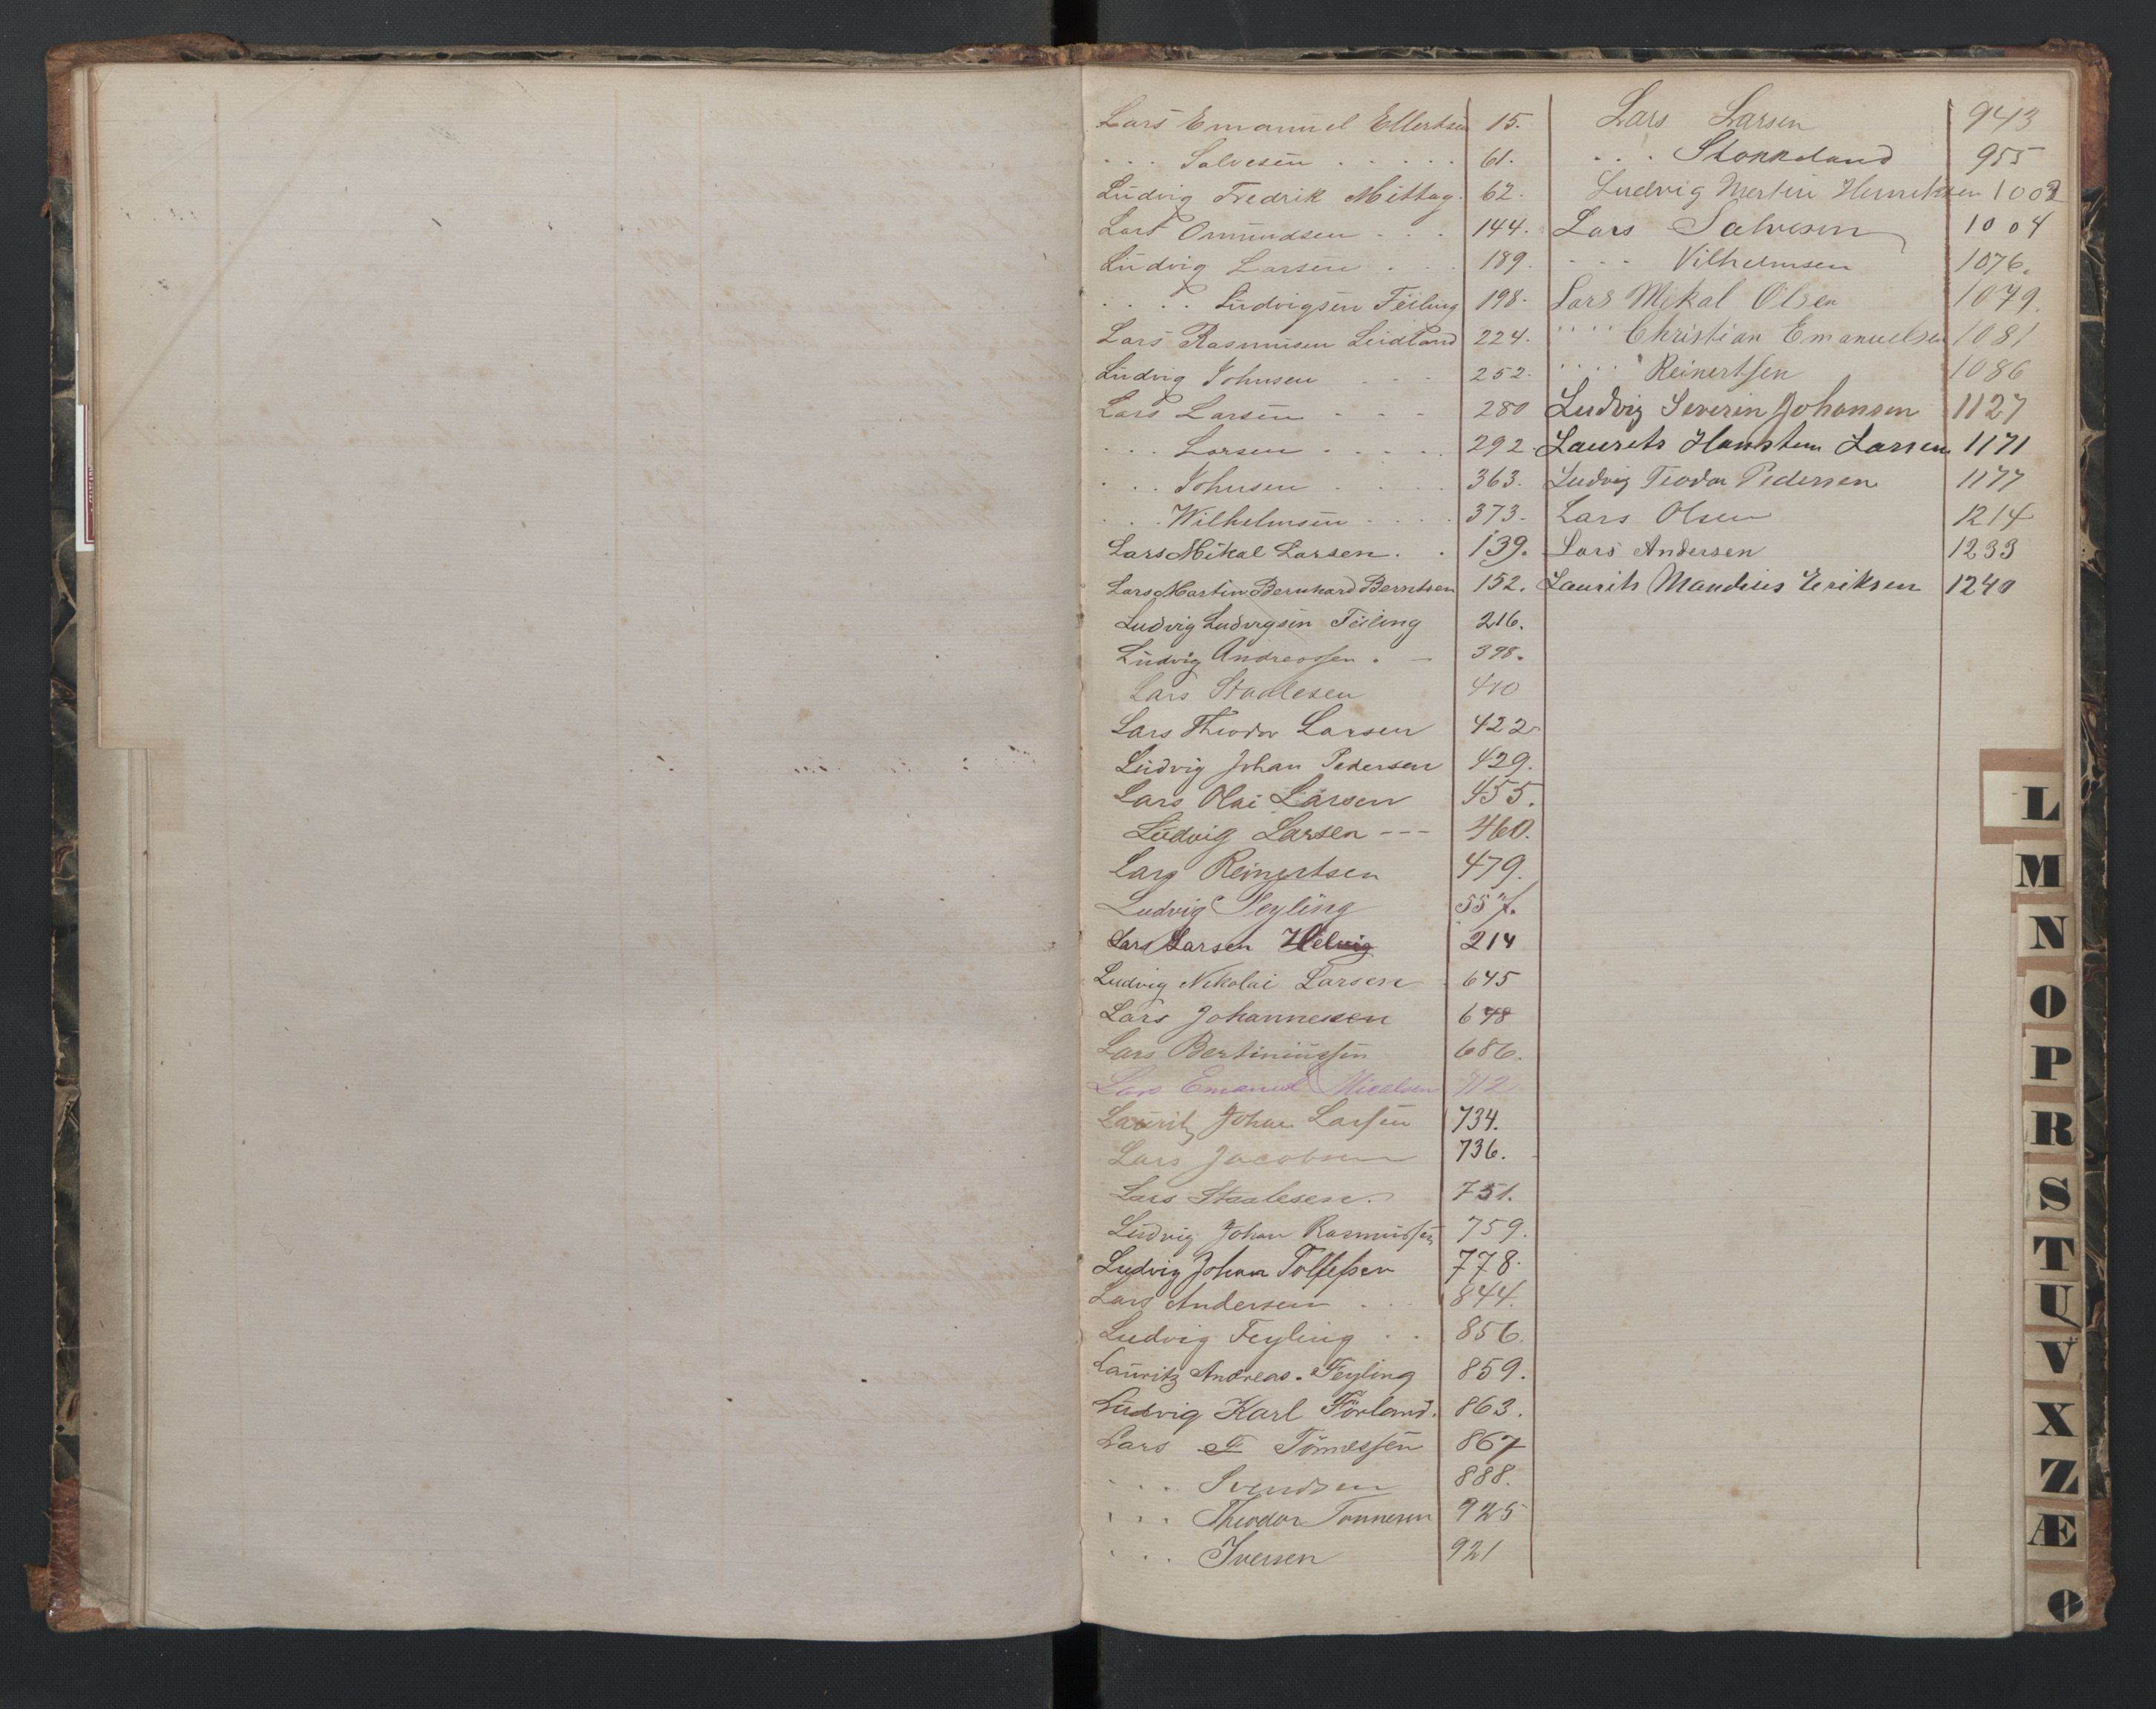 Lars Emanuel Ellertsen 15.
. . . Salvesen . . . . . 61.
Ludvig Fredrik Mittag. 62.
Lars Omundsen - . . 144.
Ludvig Larsen . . 189.
. . . . Ludvigsen Feiling 198.
Lars Rasmusen Leidland 224.
Ludvig Johnsen - - - 252.
Lars Larsen - - - 280
. . . Larsen - . - - . 292.
. . . Johnsen . . . . 363.
. . . Wilhelmsen . . . . 373.
Lars Mikal Larsen . . 139.
Lars Martin Bernhard Berntsen 152.
Ludvig Ludvigsen Feiling 216.
Ludvig Andreassen . - 398.
Lars Staalesen 410
Lars Theodor Larsen 422
Ludvig Johan Pedersen 429.
Lars Olai Larsen 455.
Ludvig Larsen --- 460.
Lars Reinertsen 479.
Ludvig Feyling 557.
Lars Larsen Helvig 214
Ludvig Nikolai Larsen . 645
Lars Johannesen 678
Lars Bertiniussen 686.
Lars Emanuel Micalsen 712
Lauritz Johan Larsen 734.
Lars Jacobsen 736.
Lars Staalesen. 751.
Ludvig Johan Rasmussen 759.
Ludvig Johan Tollefsen 778.
Lars Andersen . . . 844.
Ludvig Feyling . . 856.
Lauritz Andreas. Feyling 859.
Ludvig Karl Förland. 863.
Lars F Tönnessen 867
. . . Svendsen 888.
. . . Theodor Tonnesen 925
. . . Iversen 921
Lars Larsen 943
. . . Stokkeland 955
Ludvig Martin Henriksen 1002
Lars Salvesen 1004
. . . Vilhelmsen 1076.
Lars Mikal Olsen 1079.
" " Christian Emanuelsen 1081
. . . . Reinertsen 1086
Ludvig Severin Johansen 1127
Laurets Hanstein Larsen 1171
Ludvig Teodor Pedersen 1177
Lars Olsen 1214
Lars Andersen 1233
Laurits Mandius Eriksen 1240
L
M
N
O
P
R
S
T
U
V
X
Z
Æ
Ø